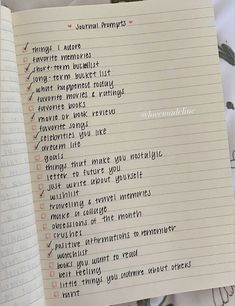 Journal Prompts
things I adore
favorite memories
short-term bucketlist
long-term bucket list
what happened today
favorite movies & ratings
favorite books
movie or book review
favorite songs
celebrities you like
dream life
goals
things that make you nostalgic
letter to future you
just write about yourself
wishlist
travelling & travel memories
make a collage
obsessions of the month
crushes
positive affirmations to remember
watchlist
books you want to read
best feeling
little things you admire about others
rant